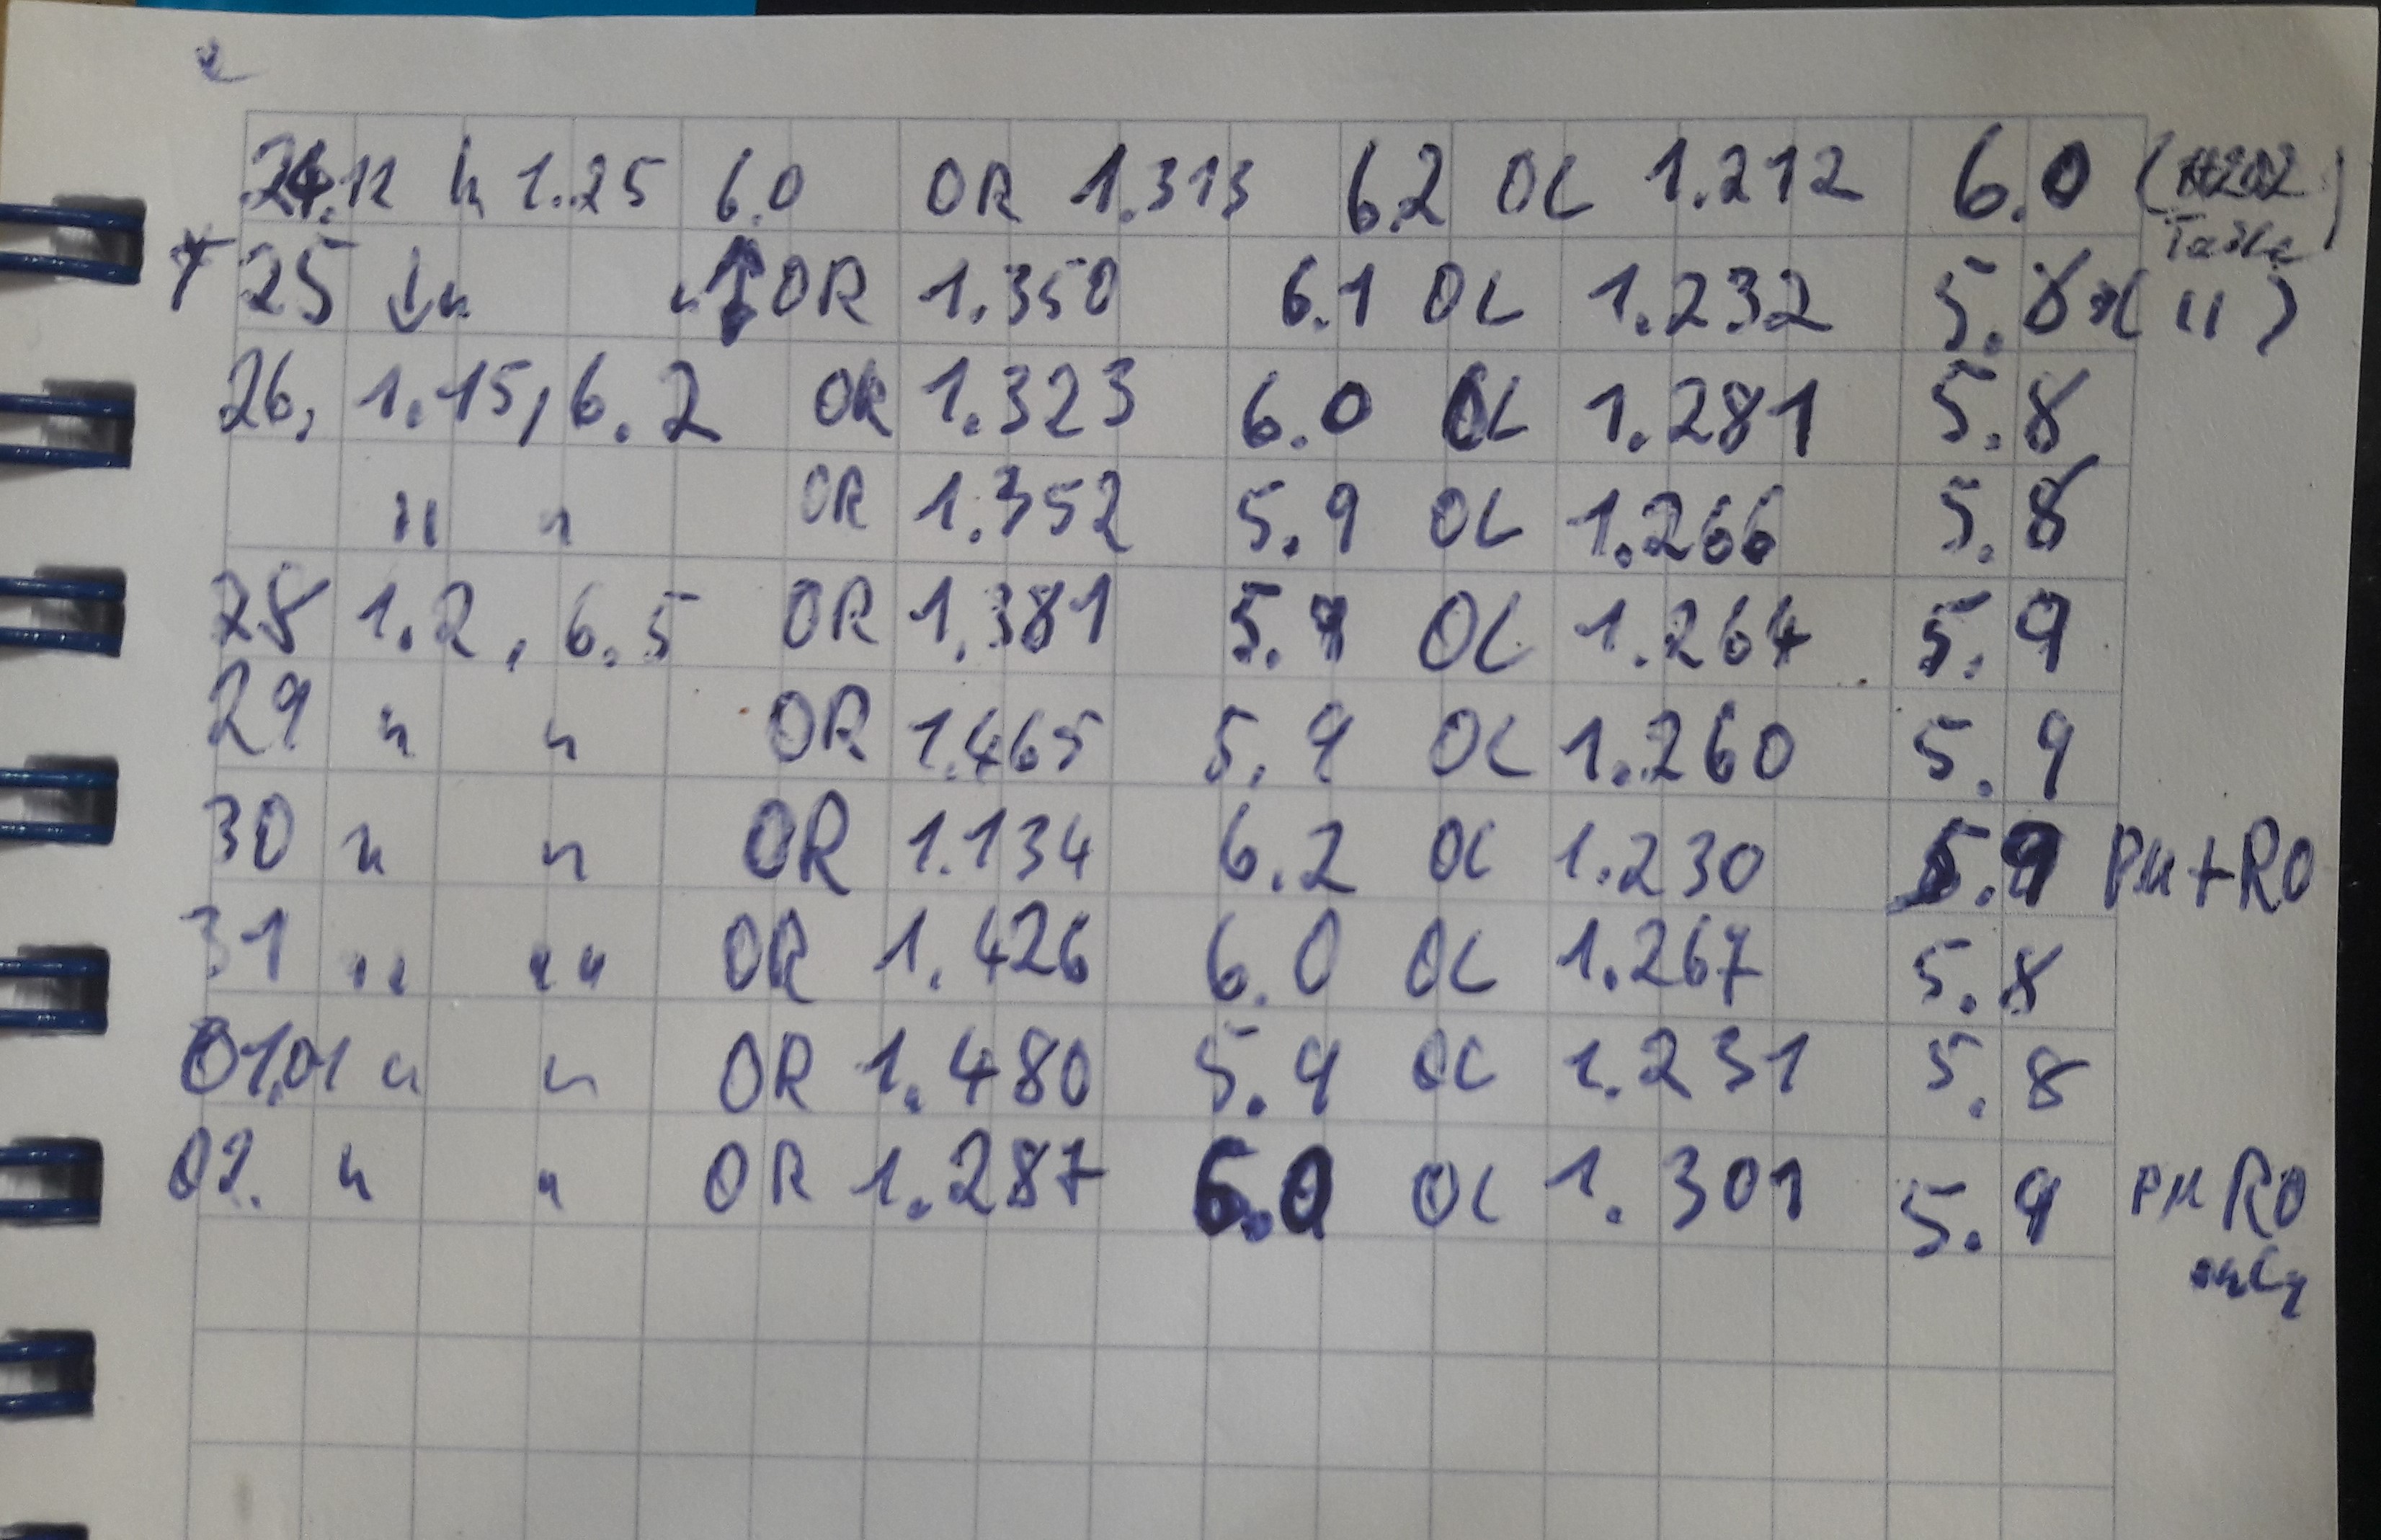 24.12 " 1.25 6.0 OR 1.313 6.2 OL 1.212 6.0 (H202
25 ↓ " " ↑ OR 1.350 6.1 OL 1.232 5.8 ( " )
26, 1.15, 6.2 OR 1.323 6.0 OL 1.281 5.8
" " OR 1.352 5.9 OL 1.266 5.8
28 1.2, 6.5 OR 1.381 5.9 OL 1.264 5.9
29 " " OR 1.465 5.9 OL 1.260 5.9
30 " " OR 1.134 6.2 OL 1.230 5.9 PM+RO
31 " " OR 1.426 6.0 OL 1.267 5.8
01.01 " " OR 1.480 5.9 OL 1.231 5.8
02. " " OR 1.287 6.0 OL 1.301 5.9 PM RO